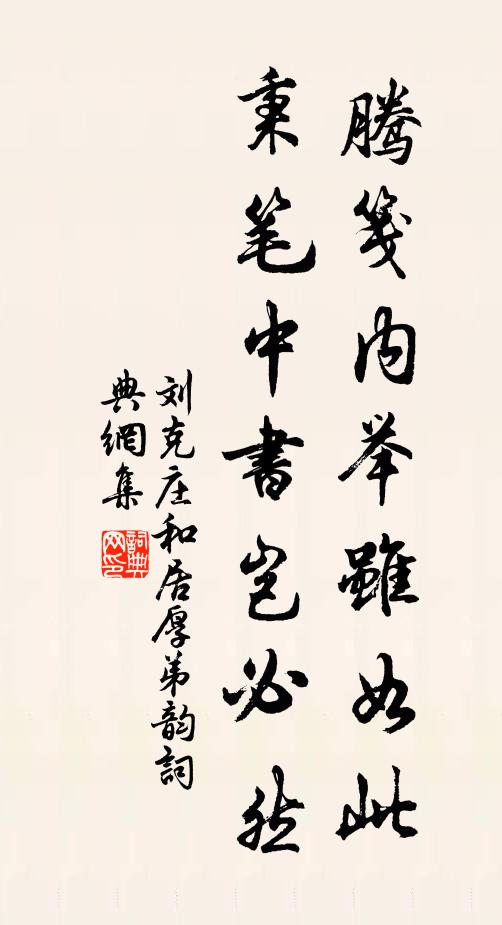 腾笺内举雖如此
秉笔中書岂必然
刘克庄和居厚弟韵詞
典網集
詞典网印